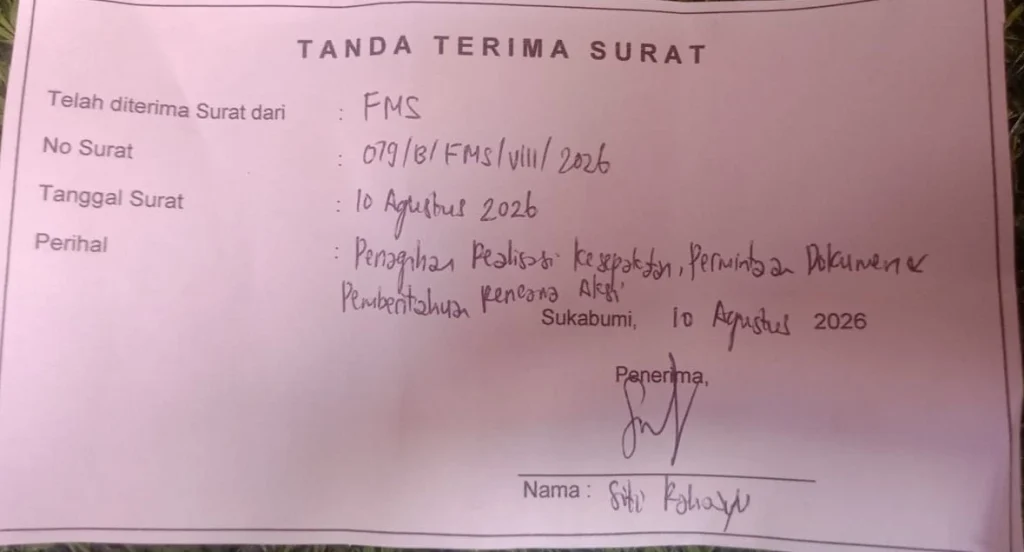 TANDA TERIMA SURAT
Telah diterima Surat dari : FMS
No Surat : 079/B/FMS/VIII/2026
Tanggal Surat : 10 Agustus 2026
Perihal : Penagihan Realisasi Kesepakatan, Permintaan Dokumen &
Pemberitahuan Rencana Aksi
Sukabumi, 10 Agustus 2026
Penerima,
Nama : Siti Rahayu